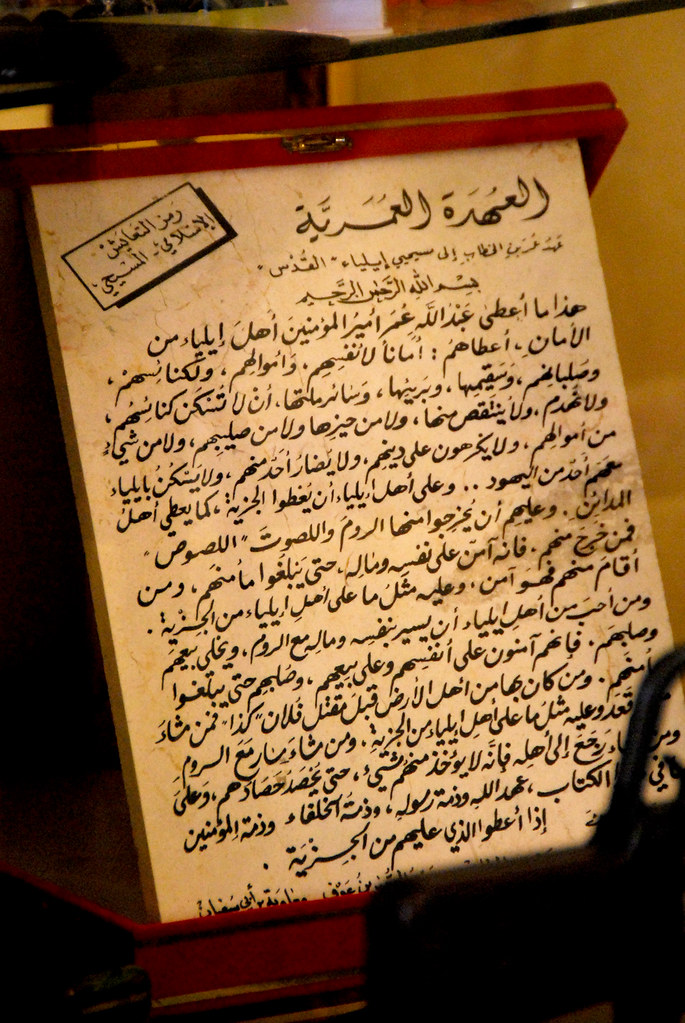 العهدة العمرية
رمز التعايش
الإسلامي - المسيحي
عهد عمر بن الخطاب إلى مسيحيي إيلياء "القدس"
بسم الله الرحمن الرحيم
هذا ما أعطى عَبْدُ اللَّهِ عُمَرُ أَمِيرُ المؤمنينَ أَهْلَ إيلياء من
الأمان، أعطاهم: أماناً لأنفسهم. وأموالهم، ولكنائسهم،
وصلبانهم، وسقيمها، وبريئها، وسائر ملتها، أن لا تُسْكَن كنائسهم،
ولا تهدم. ولا ينتقص منها، ولا من حيزها ولا من صليبهم، ولا من شيء
من أموالهم، ولا يكرهون على دينهم، ولا يضار أحد منهم، ولا يسكن بايلياء
معهم أحد من اليهود .. وعلى أهل ايلياء أن يعطوا الجزية، كما يعطي أهل
المدائن. وعليهم أن يخرجوا منها الروم واللصوت "اللصوص"
فمن خرج منهم. فانه آمن على نفسه وماله، حتى يبلغوا مأمنهم، ومن
أقام منهم فهو آمن، وعليه مثل ما على أهل إيلياء من الجزية.
ومن أحب من أهل ايلياء أن يسير بنفسه وماله مع الروم، ويخلي بيعهم
وصلبهم. فإنهم آمنون على أنفسهم وعلى بيعهم، وصلبهم حتى يبلغوا
مأمنهم. ومن كان بها من أهل الأرض قبل مقتل فلان "كذا" فمن شاء
قعد وعليه مثل ما على أهل ايلياء من الجزية. ومن شاء سار مع الروم
ومن شاء رجع إلى أهله فإنه لا يؤخذ منهم شيء، حتى يحصد حصادهم، وعلى
ما في الكتاب، عهد الله وذمة رسوله، وذمة الخلفاء وذمة المؤمنين
إذا أعطوا الذي عليهم من الجزية.
بن عوف ومعاوية بن أبي سفيان